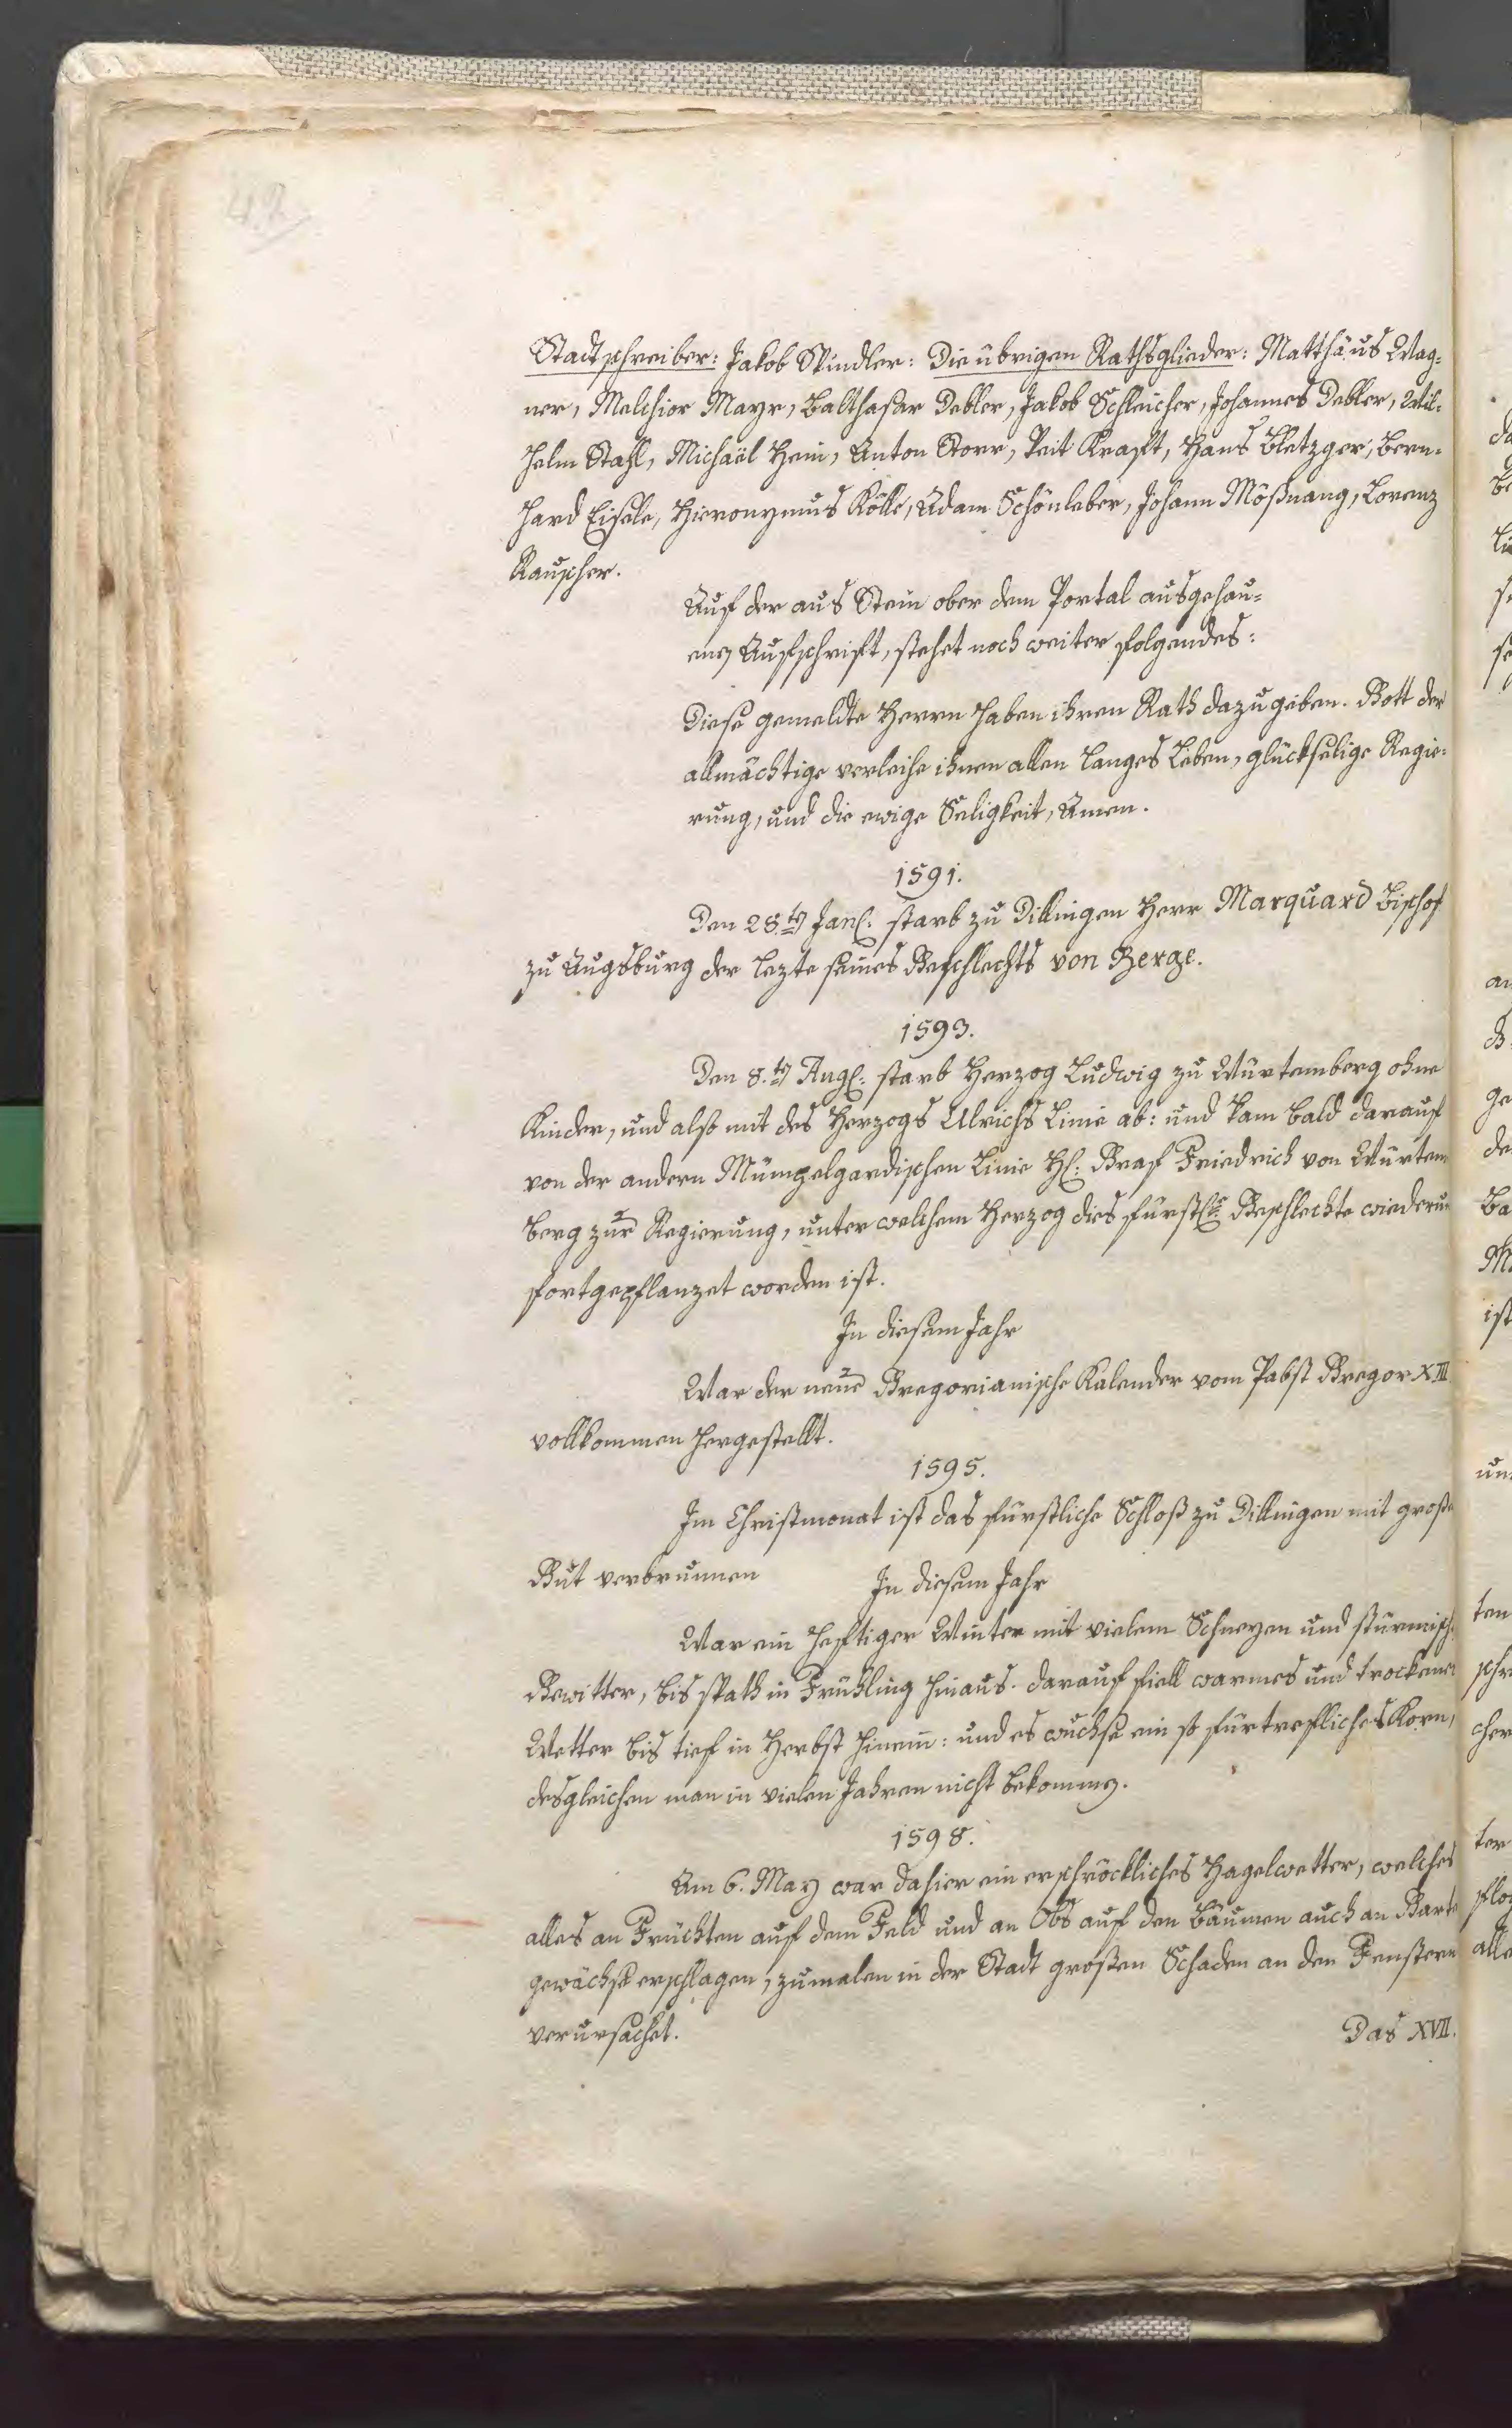 42
Stadtschreiber: Jakob Spindler: Die übrigen Rathsglieder: Matthäus Wag=
ner, Melchior Mayr, Balthasar Debler, Jakob Schleicher, Johannes Debler, Wil=
helm Stahl, Michaël Hein, Anton Storr, Veit Kraft, Hans Bletzger, Bern=
hard Eisele, Hieronymus Kölle, Adam Schönleber, Johann Mößnang, Lorenz
Rauscher.
Auf der aus Stein ober dem Portal ausgehau=
enen Aufschrift, stehet noch weiter folgendes:
Diese gemeldte Herrn haben ihren Rath dazu geben. Gott der
allmächtige verleihe ihnen allen langes Leben, glückselige Regie=
rung, und die ewige Seligkeit, Amen.
1591.
Den 28.ten Jan. starb zu Dillingen Herr Marquard Bischof
zu Augsburg der lezte seines Geschlechts von Berge.
1593.
Den 8.ten Aug. starb Herzog Ludwig zu Würtemberg ohne
Kinder, und also mit des Herzogs Ulrichs Linie ab: und kam bald darauf
von der andern Mümpelgardischen Linie H. Graf Friedrich von Würtem
berg zur Regierung, unter welchem Herzog dies fürstl. Geschlechte wiederum
fortgepflanzet worden ist.
In diesem Jahr
War der neue Gregorianische Kalender vom Pabst Gregor XIII
vollkommen hergestellt.
1595.
Im Christmonat ist das fürstliche Schloß zu Dillingen mit große
Gut verbrunnen
In diesem Jahr
War ein heftiger Winter mit vielem Schneyen und stürmisch.
Gewitter, bis spath in Frühling hinaus. darauf fiell warmes und trockenes
Wetter bis tief in Herbst hinein: und es wuchse ein so fürtrefliches Korn,
desgleichen man in vielen Jahren nicht bekommen.
1598.
Am 6. May war dahier ein erschröckliches Hagelwetter, welches
alles an Früchten auf dem Feld und an Obs auf den Bäumen auch an Garte
gewächse erschlagen, zumalen in der Stadt großen Schaden an den Fenstern
verursachet.
Das XVII.